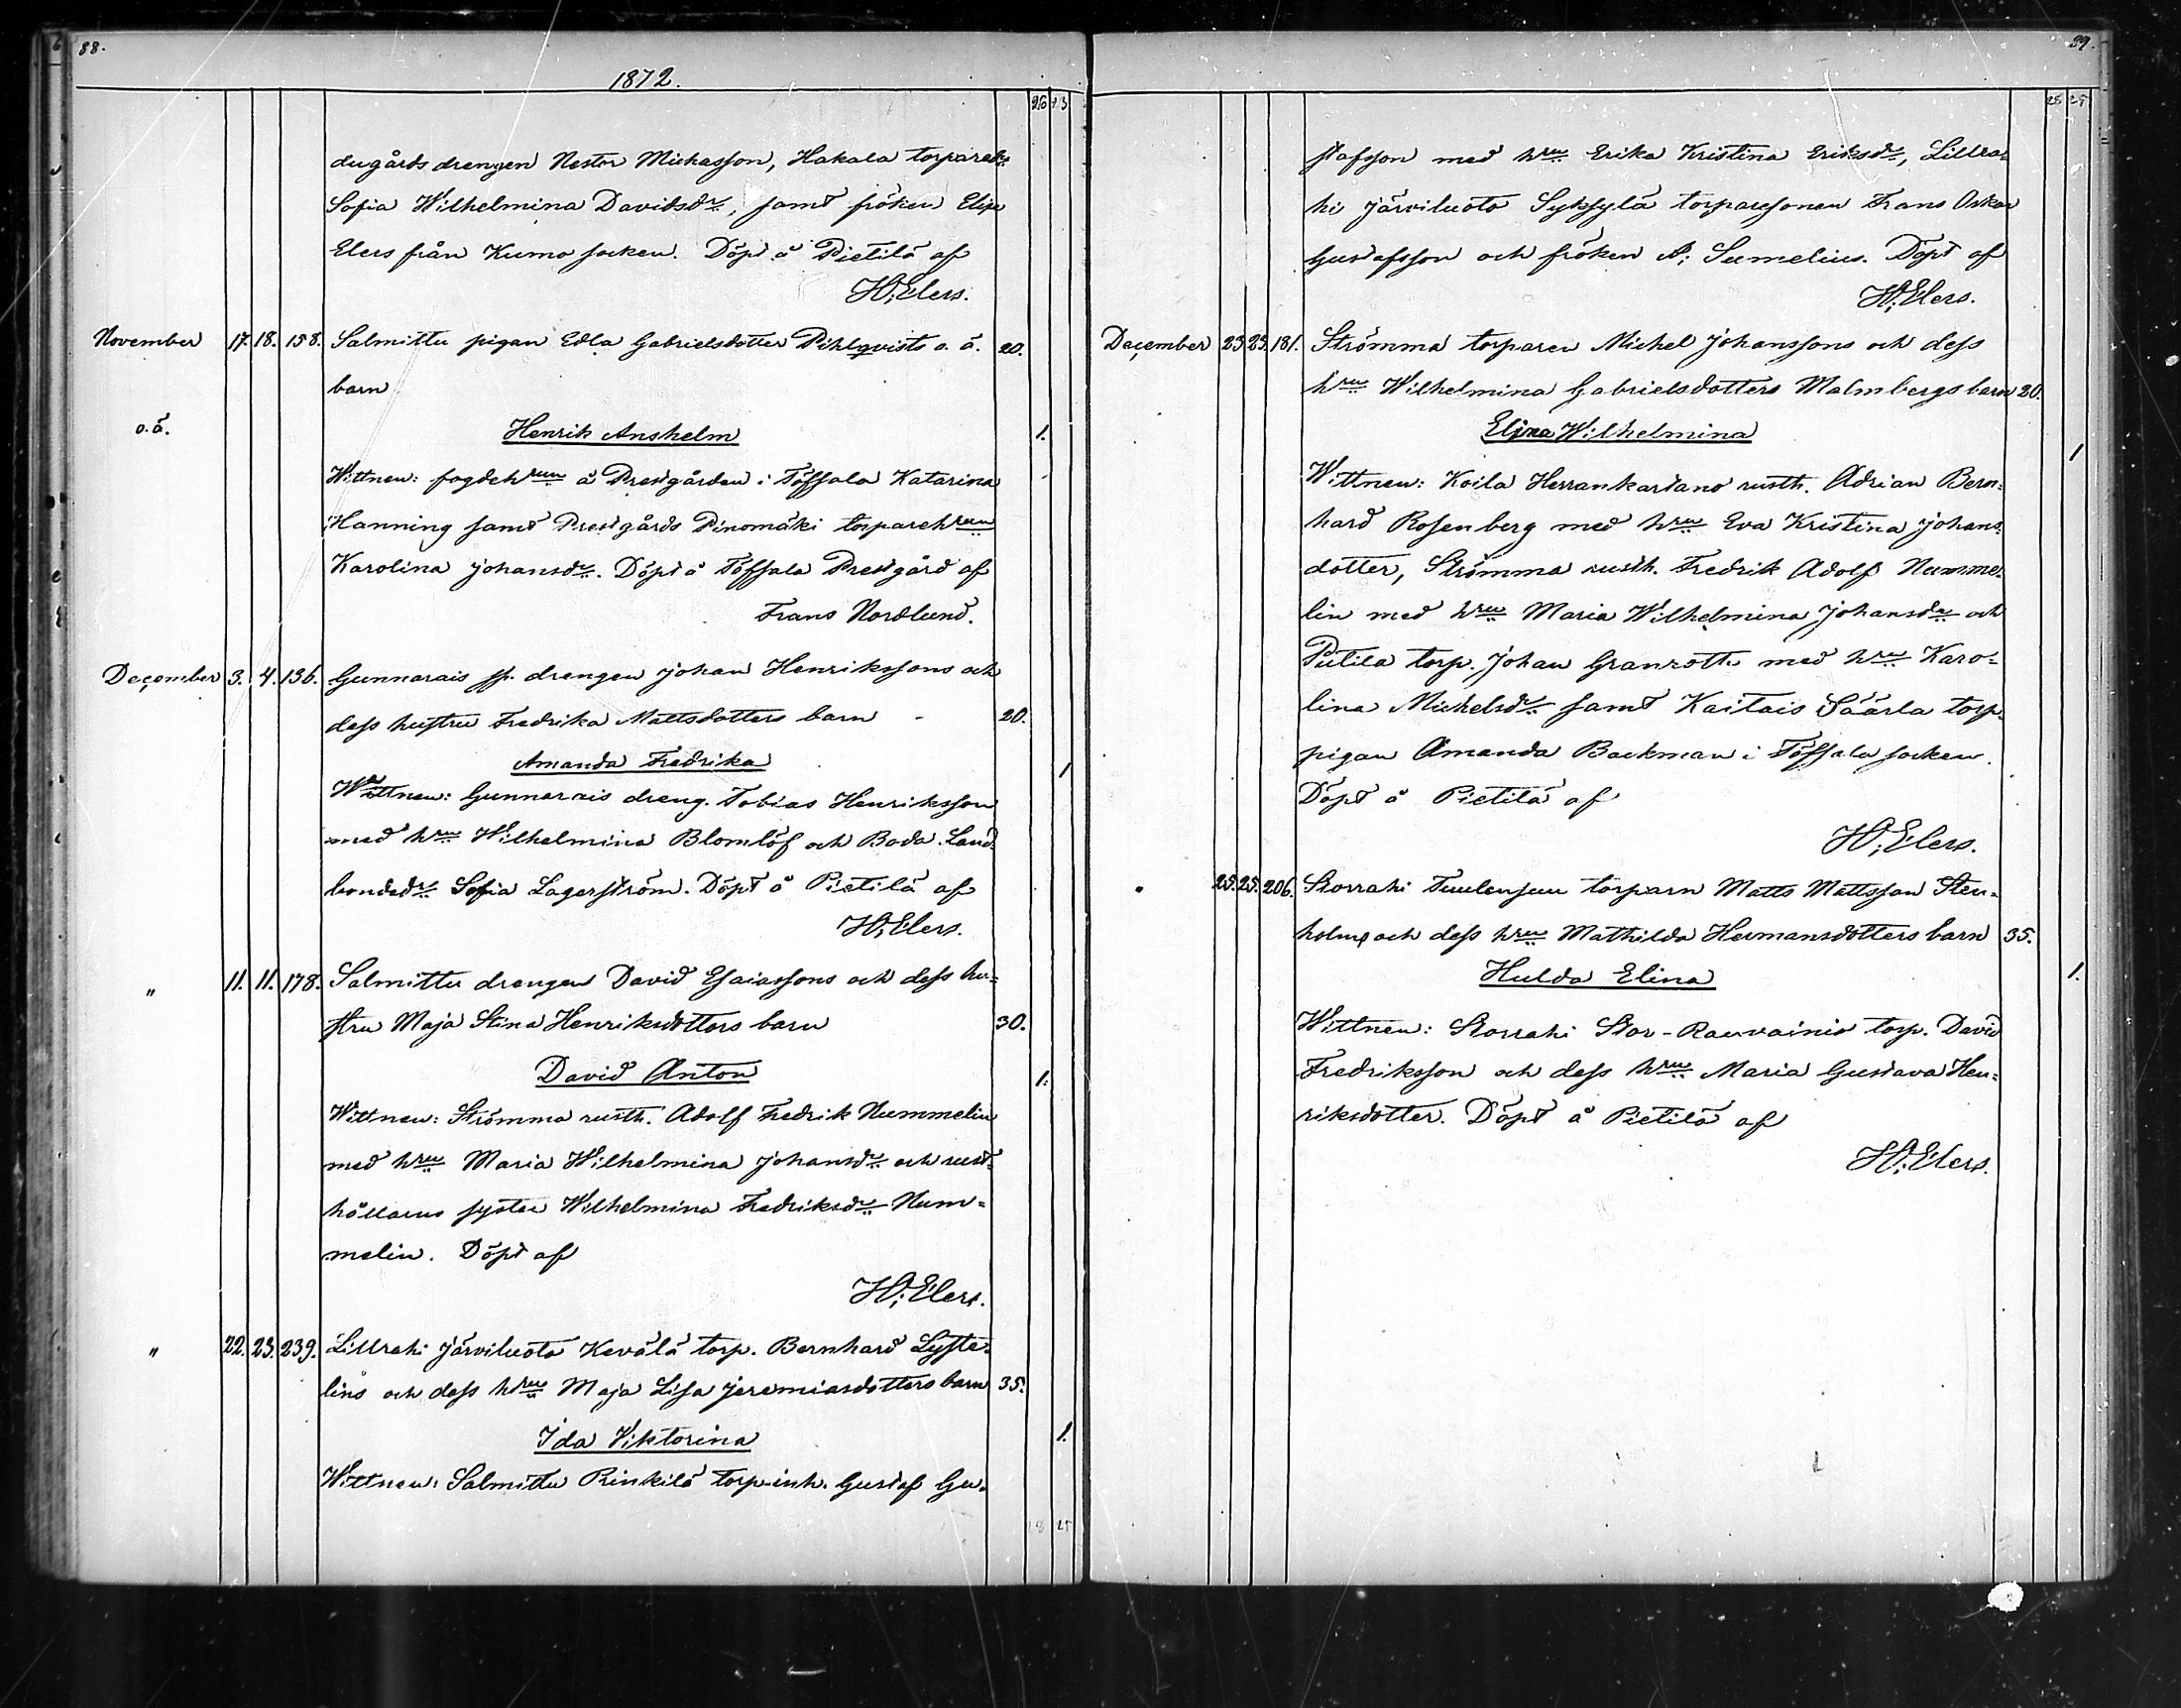 88.
1872.
26 23
dugårds drengen Nestor Michasson, Hakala torpareds
Sofia Wilhelmina Davidsdr, samt fröken Elise
Elers från Kumo socken. Döpt å Pietilä af
H; Elers.
November 17. 18. 158. Salmittu pigan Edla Gabrielsdotter Pihlqvists o. ä. 20.
barn
o.ä. Henrik Anshelm 1.
Wittnen: fogdehrun å Prestgården i Töfsala Katarina
Hanning samt Prestgårds Pinomäki torparehrun
Karolina Johansdr. Döpt å Töfsala Prestgård af
Frans Nordlund.
December 3. 4. 136. Gunnarais sp. drengen Johan Henrikssons och
dess hustru Fredrika Mattsdotters barn - 20.
Amanda Fredrika 1
Wittnen: Gunnarais dreng. Tobias Henriksson
med hru Wilhelmina Blomlöf och Boda Land-
bondedr Sofia Lagerström. Döpt å Pietilä af
H; Elers.
" 11. 11. 178. Salmittu drengen David Esaiassons och dess hu-
stru Maja Stina Henriksdotters barn 30.
David Anton 1.
Wittnen: Strömma rusth. Adolf Fredrik Nummelin
med hru Maria Wilhelmina Johansdr och rust-
hållarns syster Wilhelmina Fredriksdr Num-
melin. Döpt af
H; Elers.
" 22. 23. 239. Lillrahi Järviluoto Kevälä torp. Bernhard Lyste-
lins och dess hru Maja Lisa Jeremiasdotters barn 35.
Ida Viktorina 1.
Wittnen: Salmittu Rinkilä torp-inh. Gustaf Gu-
25
89.
25 25
stafsson med hru Erika Kristina Eriksdr, Lillra-
hi Järviluoto Syksylä torparesonen Frans Oskar
Gustafsson och fröken A; Sumelius. Döpt af
H; Elers.
December 23 23. 181. Strömma torparen Michel Johanssons och dess
hru Wilhelmina Gabrielsdotters Malmbergs barn 20.
Elina Wilhelmina 1
Wittnen: Koila Herrankartano rusth. Adrian Bern-
hard Rosenberg med hru Eva Kristina Johans-
dotter, Strömma rusth. Fredrik Adolf Numme-
lin med hru Maria Wilhelmina Johansdr och
Pietilä torp. Johan Granroth med hru Karo-
lina Michelsdr samt Kaitais Säärla torp.
pigan Amanda Backman i Töfsala socken.
Döpt å Pietilä af
H; Elers.
" 25. 25. 206. Storrahi Tuulensuu torparn Matts Mattsson Sten-
holms och dess hru Mathilda Hermansdotters barn 35.
Hulda Elina 1.
Wittnen: Storrahi Stor-Rauvainio torp. David
Fredriksson och dess hru Maria Gustava Hen-
riksdotter. Döpt å Pietilä af
H; Elers.